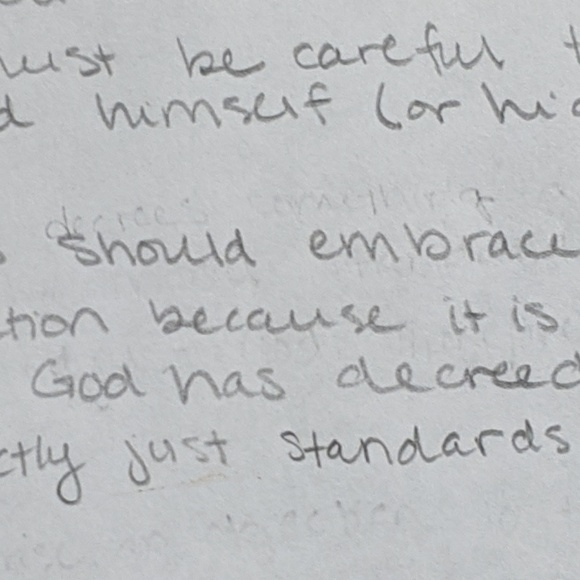 must be careful t
d himself (or hi
decides something
should embrace
tion because it is
God has decreed
ctly just standards